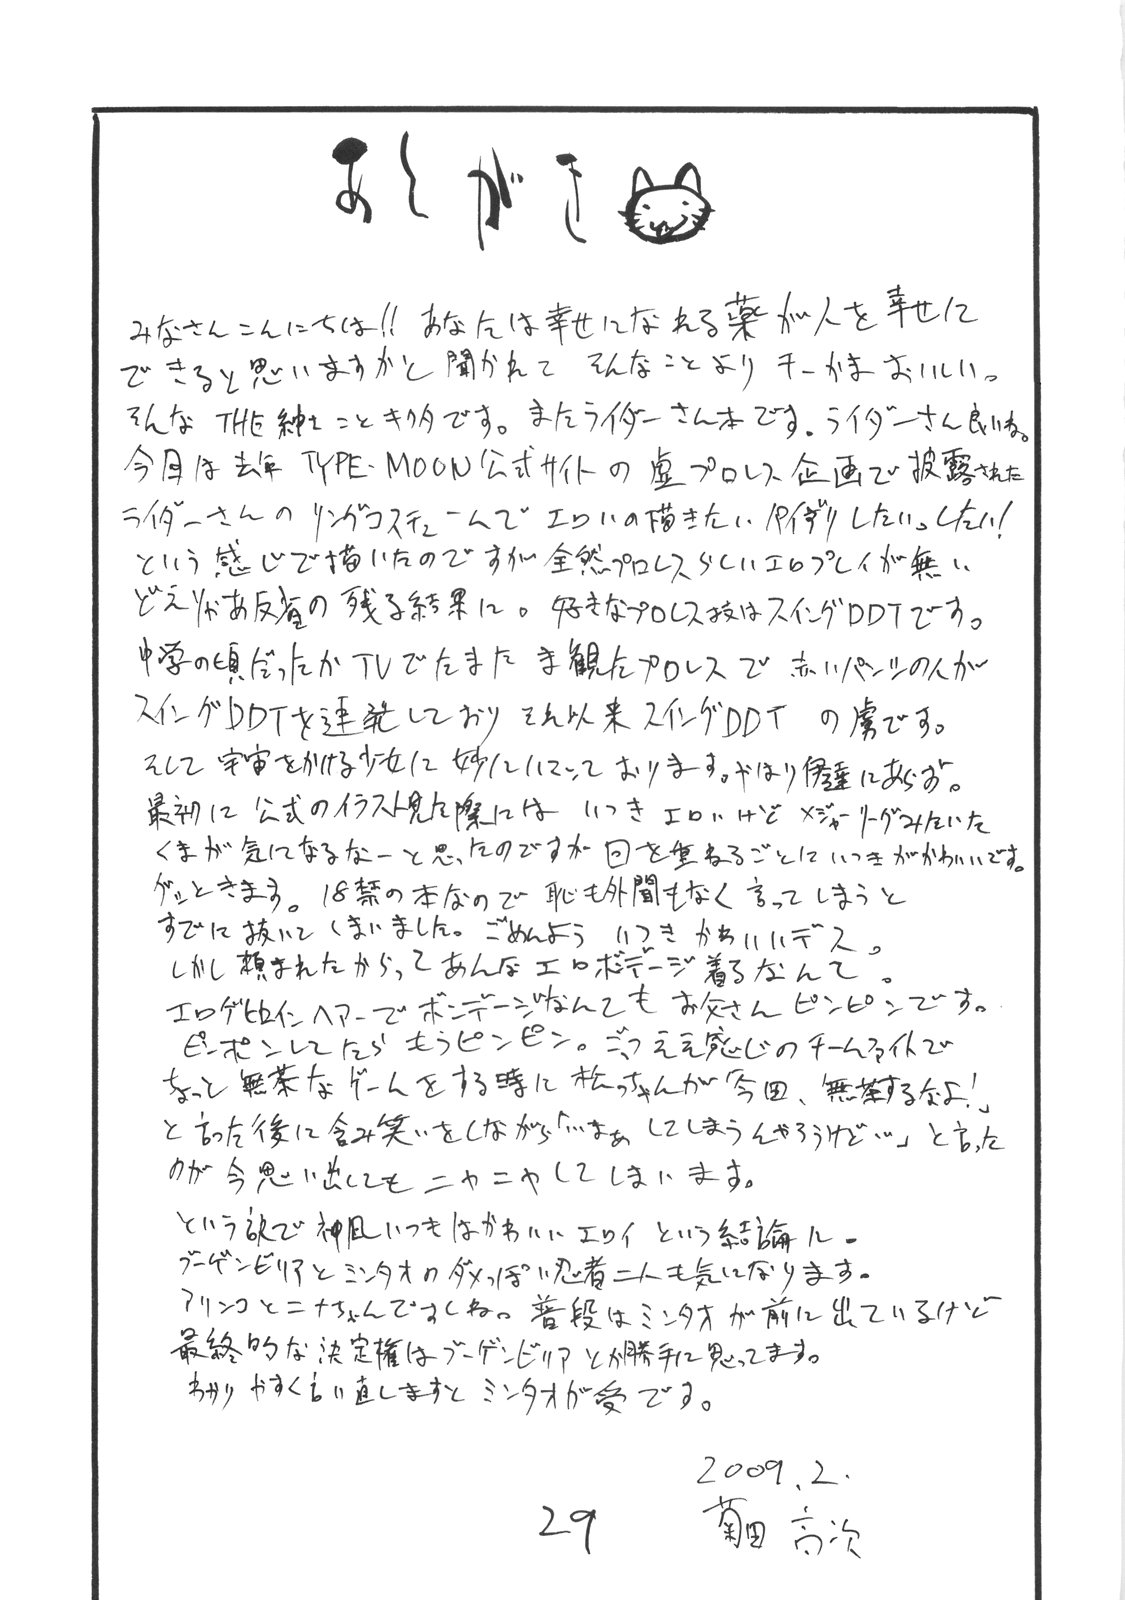 あとがき
みなさんこんにちは!! あなたは幸せになれる薬が人を幸せに
できると思いますかと聞かれて そんなことより チーかまおいしい。
そんな THE紳士ことキクタです。またライダーさん本です。ライダーさん良いね。
今回は去年 TYPE-MOON公式サイトの虚プロレス企画で披露された
ライダーさんの リングコスチュームんで エロいの描きたい パイずりしたいっしたい!
という感じで描いたのですが全然プロレスらしいエロプレイが無い
どえりゃあ反省の残る結果に。好きなプロレス技はスイングDDTです。
中学の頃だったかTVでたまたま観たプロレスで 赤いパンツの人が
スイングDDTを連発しており それ以来スイングDDT の虜です。
そして宇宙をかける少女に妙にハマっております。やはり伊達にあらず。
最初に公式のイラスト見た際には いつきエロいけど メジャーリーグみたいた
くまが気になるなーと思ったのですが回を重ねるごとにいつきがかわいいです。
グッときます。18禁の本なので恥も外聞もなく言ってしまうと
すでに抜いてしまいました。ごめんよう いつきかわいいデス。
しかし頼まれたからってあんなエロボンデージ着るなんて。
エロゲヒロインヘアーでボンデージなんてもお父さんピンピンです。
ピンポンしてたらもうピンピン。ごっつええ感じのチームファイトで
ちょっと無茶なゲームをする時に松っちゃんが「今田、無茶するなよ!」
と言った後に含み笑いをしながら「…まぁ してしまうんやろうけど…」と言った
のが今思い出してもニヤニヤしてしまいます。
という訳で神凪いつきはかわいいエロイという結論に。
ブーゲンビリアとミンタオのダメっぽい忍者二人も気になります。
アリンコとニナちゃんですしね。普段はミンタオが前に出ているけど
最終的な決定権はブーゲンビリアとか勝手に思ってます。
わかりやすく言い直しますとミンタオが受です。
2009.2.
菊田 高次
29